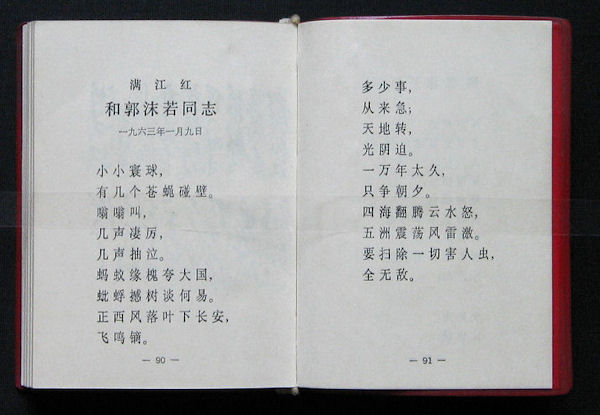 满江红
和郭沫若同志
一九六三年一月九日
小小寰球,
有几个苍蝇碰壁。
嗡嗡叫,
几声凄厉,
几声抽泣。
蚂蚁缘槐夸大国,
蚍蜉撼树谈何易。
正西风落叶下长安,
飞鸣镝。
— 90 —
多少事,
从来急;
天地转,
光阴迫。
一万年太久,
只争朝夕。
四海翻腾云水怒,
五洲震荡风雷激。
要扫除一切害人虫,
全无敌。
— 91 —